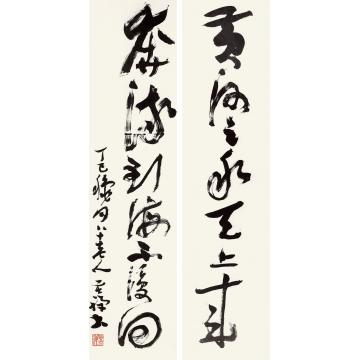 黄河之水天上来
奔流到海不復回
丁巳八十老人